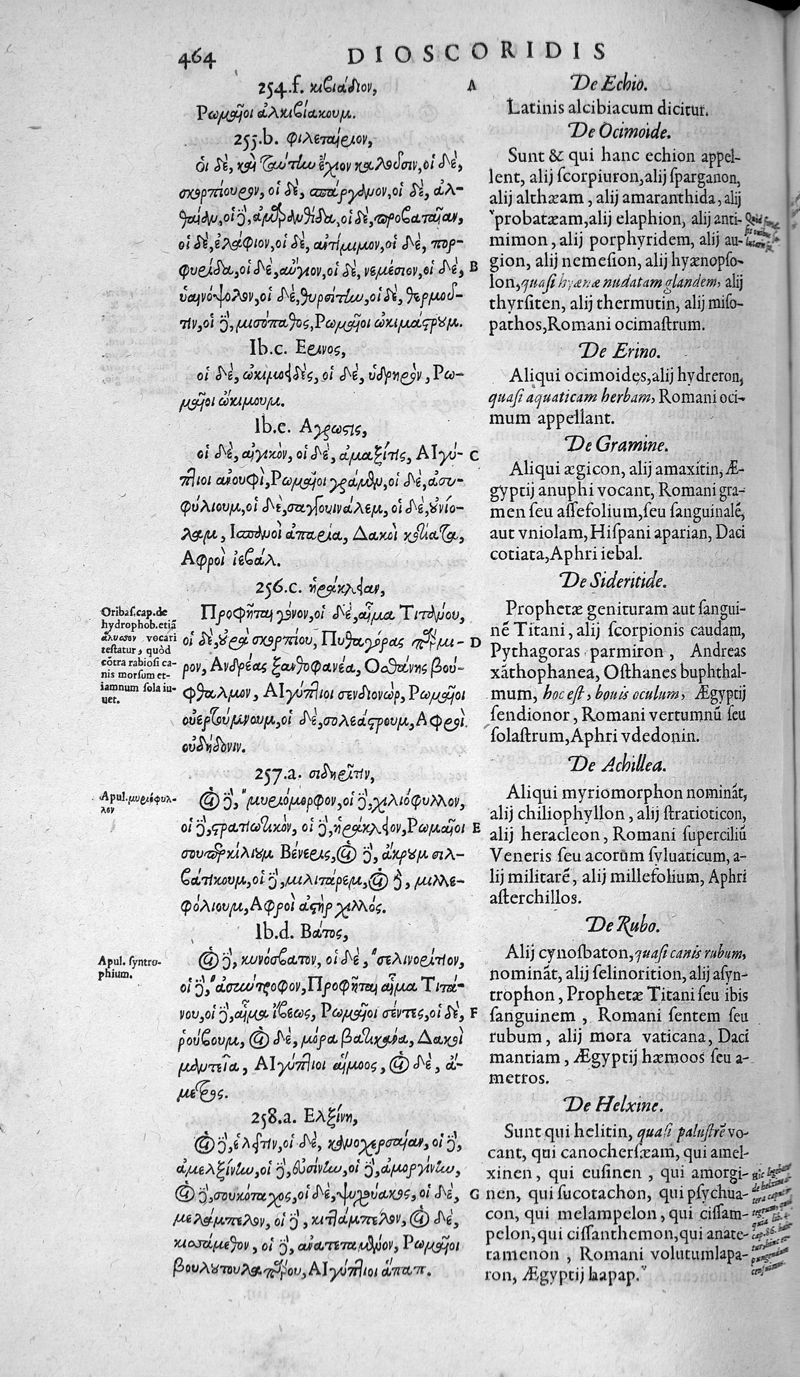 464
DIOSCORIDIS
254.f. κιβιάδιον,
Ρωμαῖοι ἀλκιβιάκουμ.
255.b. φιλεταίριον,
Οἱ δὲ, καὶ ταύτην ἔχιον καλοῦσιν, οἱ δὲ,
σκορπίουρον, οἱ δὲ, σπάργανον, οἱ δὲ, ἀλ-
θαίαν, οἱ δὲ, ἀμαρανθίδα, οἱ δὲ, προβαταίαν,
οἱ δὲ, ἐλάφιον, οἱ δὲ, ἀντίμιμον, οἱ δὲ, πορ-
φυρίδα, οἱ δὲ, αὔγιον, οἱ δὲ, νεμέσιον, οἱ δὲ,
ὑαινόψολον, οἱ δὲ, θυρσίτην, οἱ δὲ, θερμού-
τιν, οἱ δὲ, μισόπαθος, Ρωμαῖοι ὠκιμάστρουμ.
Ib.c. Ερινος,
οἱ δὲ, ὠκιμοειδὲς, οἱ δὲ, ὑδρηρὸν, Ρω-
μαῖοι ὠκιμουμ.
Ib.e. Αγρωστις,
οἱ δὲ, αἰγικὸν, οἱ δὲ, ἀμαξίτις, Αἰγύ-
πτιοι ἀνουφὶ, Ρωμαῖοι γράμεν, οἱ δὲ, ἀσυ-
φόλιουμ, οἱ δὲ, σαγγουινάλεμ, οἱ δὲ, οὐνίο-
λαμ, Ισπανοὶ ἀπαρία, Δακοὶ κοτίατα,
Αφροὶ ἰεβάλ.
256.c. ἡράκλειαν,
Προφῆται γόνον, οἱ δὲ, αἷμα Τιτάνου,
οἱ δὲ, οὐρὰ σκορπίου, Πυθαγόρας παρμι-
ρον, Ανδρέας ξανθοφανέα, Οσθάνης βού-
φθαλμον, Αἰγύπτιοι σενδιονὼρ, Ρωμαῖοι
οὐερτούμνουμ, οἱ δὲ, σολεάστρουμ, Αφροὶ
οὐδήδονιν.
257.a. σιδηρῖτιν,
οἱ δὲ, μυριόμορφον, οἱ δὲ, χιλιόφυλλον,
οἱ δὲ, στρατιωτικὸν, οἱ δὲ, ἡράκλειον, Ρωμαῖοι
σουπερκίλιουμ Βένερις, οἱ δὲ, ἄκρουμ σιλ-
βάτικουμ, οἱ δὲ, μιλιτάρεμ, οἱ δὲ, μιλλε-
φόλιουμ, Αφροὶ ἀστὴρ χιλλός.
Ib.d. Βάτος,
οἱ δὲ, κυνόσβατον, οἱ δὲ, σελινορίτιον,
οἱ δὲ, ἀσύντροφον, Προφῆται αἷμα Τιτά-
νου, οἱ δὲ, αἷμα ἴβεως, Ρωμαῖοι σέντες, οἱ δὲ,
ῥούβουμ, οἱ δὲ, μόρα βατικάνα, Δακοὶ
μαντεία, Αἰγύπτιοι αἵμοος, οἱ δὲ, ἀ-
μετρος.
258.a. Ελξίνη,
οἱ δὲ, ἑλίτιν, οἱ δὲ, κανοχερσαίαν, οἱ δὲ,
ἀμελξίνην, οἱ δὲ, εὐσίνην, οἱ δὲ, ἀμοργίνην,
οἱ δὲ, σουκόταχος, οἱ δὲ, ψυχούακος, οἱ δὲ,
μελάμπελον, οἱ δὲ, κιττάμπελον, οἱ δὲ,
κισσάμεθον, οἱ δὲ, ἀνατεταμένον, Ρωμαῖοι
βουλούτουλαπαρου, Αἰγύπτιοι ἁπαπ.
Oribas. cap. de
hydrophob. etiã
ἄλυσον vocari
testatur, quòd
cõtra rabiosi ca-
nis morsum et-
iamnum sola iu-
uet.
Apul. μυριόφυλ-
λον
Apul. syntro-
phium.
A
B
C
D
E
F
G
De Echio.
Latinis alcibiacum dicitur.
De Ocimoide.
Sunt & qui hanc echion appel-
lent, alij scorpiuron, alij sparganon,
alij althæam, alij amaranthida, alij
probatæam, alij elaphion, alij anti-
mimon, alij porphyridem, alij au-
gion, alij nemesion, alij hyænopso-
lon, quasi hyænæ nudatam glandem, alij
thyrsiten, alij thermutin, alij miso-
pathos, Romani ocimastrum.
De Erino.
Aliqui ocimoides, alij hydreron,
quasi aquaticam herbam, Romani oci-
mum appellant.
De Gramine.
Aliqui ægicon, alij amaxitin, Æ-
gyptij anuphi vocant, Romani gra-
men seu assefolium, seu sanguinalẽ,
aut vniolam, Hispani aparian, Daci
cotiata, Aphri iebal.
De Sideritide.
Prophetæ genituram aut sangui-
nẽ Titani, alij scorpionis caudam,
Pythagoras parmiron, Andreas
xãthophanea, Osthanes buphthal-
mum, hoc est, bouis oculum, Ægyptij
sendionor, Romani vertumnũ seu
solastrum, Aphri vdedonin.
De Achillea.
Aliqui myriomorphon nominãt,
alij chiliophyllon, alij stratioticon,
alij heracleon, Romani superciliũ
Veneris seu acorum syluaticum, a-
lij militarẽ, alij millefolium, Aphri
asterchillos.
De Rubo.
Alij cynosbaton, quasi canis rubum,
nominãt, alij selinorition, alij asyn-
trophon, Prophetæ Titani seu ibis
sanguinem, Romani sentem seu
rubum, alij mora vaticana, Daci
mantiam, Ægyptij hæmoos seu a-
metros.
De Helxine.
Sunt qui helitin, quasi palustrẽ vo-
cant, qui canochersæam, qui amel-
xinen, qui eusinen, qui amorgi-
nen, qui sucotachon, qui psychua-
con, qui melampelon, qui cissam-
pelon, qui cissanthemon, qui anate-
tamenon, Romani volutumlapa-
ron, Ægyptij hapap.